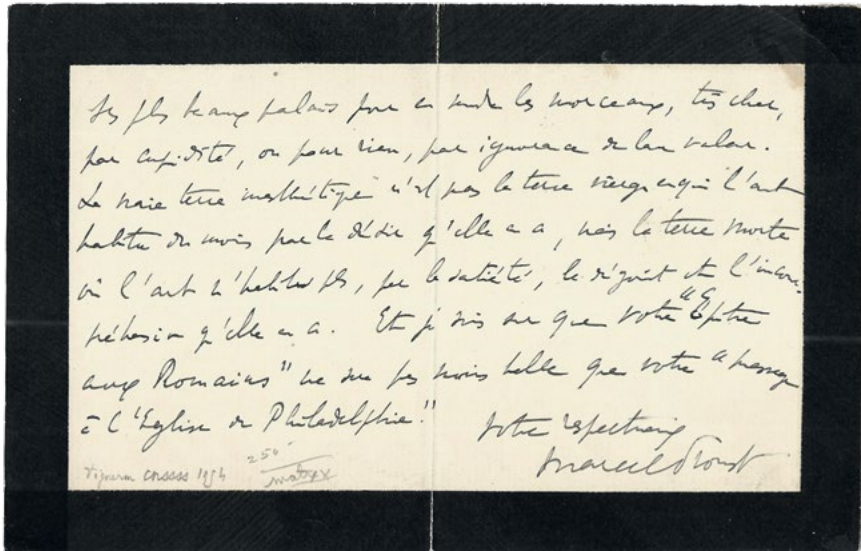 les plus beaux palais pour en vendre les morceaux, très cher,
par cupidité, ou pour rien, par ignorance de leur valeur.
La vraie terre inesthétique n'est pas la terre vierge en qui l'art
habite du moins par le désir qu'elle en a, mais la terre morte
où l'art n'habite plus, par la satiété, le dégoût et l'incom-
préhension qu'elle en a. Et je suis sûr que votre "Epitre
aux Romains" ne sera pas moins belle que votre "message
à l'Eglise de Philadelphie."
Votre respectueux
Marcel Proust
1954
250